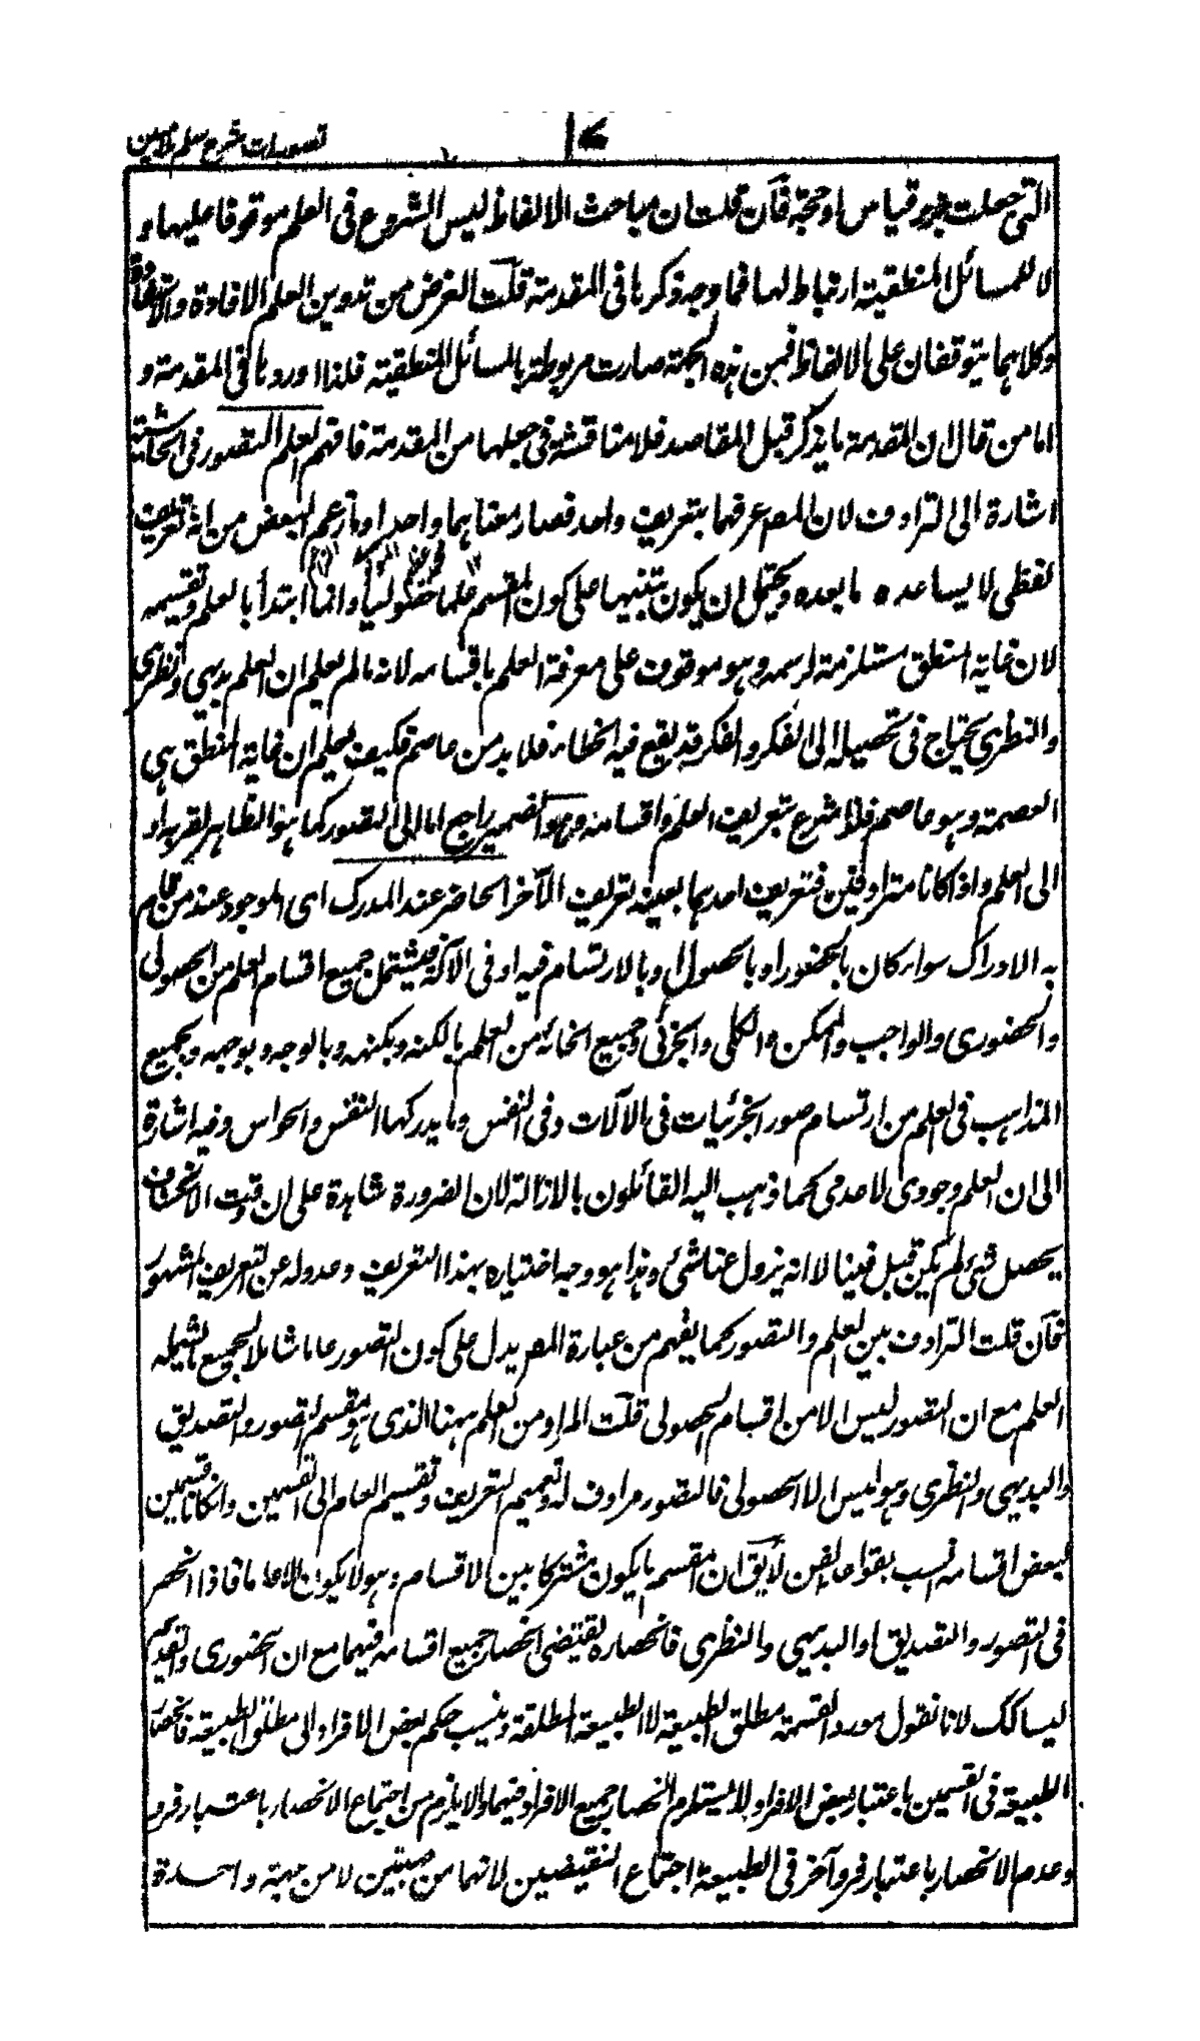 تصورات شرح سلم ملا مبين
١٢
التي جعلت جزء قياس او حجة فان قلت ان مباحث الالفاظ ليس الشروع في العلم موقوفا عليها و
لا للمسائل المنطقية ارتباط لها فما وجه ذكرها في المقدمة قلت الغرض من تدوين العلم الافادة والاستفادة
وكلاهما يتوقفان على الالفاظ فمن هذه الجهة صارت مربوطة بالمسائل المنطقية فلذا اوردها في المقدمة و
اما من قال ان المقدمة ما يذكر قبل المقاصد فلا مناقشة في جعلها من المقدمة فافهم العلم التصور في الحاشية
اشارة الى الترادف لان المصـ عرفهما بتعريف واحد فصار معناهما واحدا وما زعم البعض من انه تعريف
لفظي لا يساعده ما بعده ويحتمل ان يكون تنبيها على كون المقسم علما حصوليا وانما ابتدأ بالعلم وتقسيمه
لان غاية المنطق مستلزمة لرسمه وهو موقوف على معرفة العلم باقسامه لانه ما لم يعلم ان العلم بديهي ونظري
والنظري يحتاج في تحصيله الى الفكر والفكر قد يقع فيه الخطاء فلا بد من عاصم فكيف يعلم ان غاية المنطق هي
العصمة وهو عاصم فلذا شرع بتعريف العلم واقسامه وهو الضمير راجع اما الى التصور كما هو الظاهر لقربه او
الى العلم واذا كانا مترادفين فتعريف احدهما بعينه تعريف الآخر الحاضر عند المدرك اى الموجود عند من قام
به الادراك سواء كان بالحضور او بالحصول او بالارتسام فيه او في الآلة فيشتمل جميع اقسام العلم من الحصولي
والحضوري والواجب والممكن والكلي والجزئي وجميع انحائه من العلم بالكنه وبكنهه وبالوجه وبوجهه وجميع
المذاهب في العلم من ارتسام صور الجزئيات في الآلات وفي النفس وما يدركها النفس والحواس وفيه اشارة
الى ان العلم وجودي لا عدمي كما ذهب اليه القائلون بالازالة لان الضرورة شاهدة على ان وقت الانكشاف
يحصل شئ لم يكن قبل فينا لا انه يزول عنا شئ وهذا هو وجه اختياره بهذا التعريف وعدوله عن التعريف المشهور
فان قلت الترادف بين العلم والتصور كما يفهم من عبارة المصـ يدل على كون التصور عاما شاملا لجميع ما يشمله
العلم مع ان التصور ليس الا من اقسام الحصولي قلت المراد من العلم ههنا الذي هو مقسم التصور والتصديق
والبديهي والنظري وهو ليس الا الحصولي فالتصور مرادف له وتعميم التعريف وتقسيم العام الى القسمين وان كانا قسمين
لبعض اقسامه انسب بقواعد الفن لا يق ان المقسم ما يكون مشتركا بين الاقسام وهو لا يكون الا عاما فاذا انحصر
في التصور والتصديق او البديهي والنظري فانحصاره يقتضي انحصار جميع اقسامه فيهما مع ان الحضوري والقديم
ليسا كك لانا نقول مورد القسمة مطلق الطبيعة لا الطبيعة المطلقة وينسب حكم بعض الافراد الى مطلق الطبيعة فانحصار
الطبيعة في القسمين باعتبار بعض الافراد لا يستلزم انحصار جميع الافراد فيهما ولا يلزم من اجتماع الانحصار باعتبار فرد
وعدم الانحصار باعتبار فرد آخر في الطبيعة اجتماع النقيضين لانهما من جهتين لا من جهة واحدة